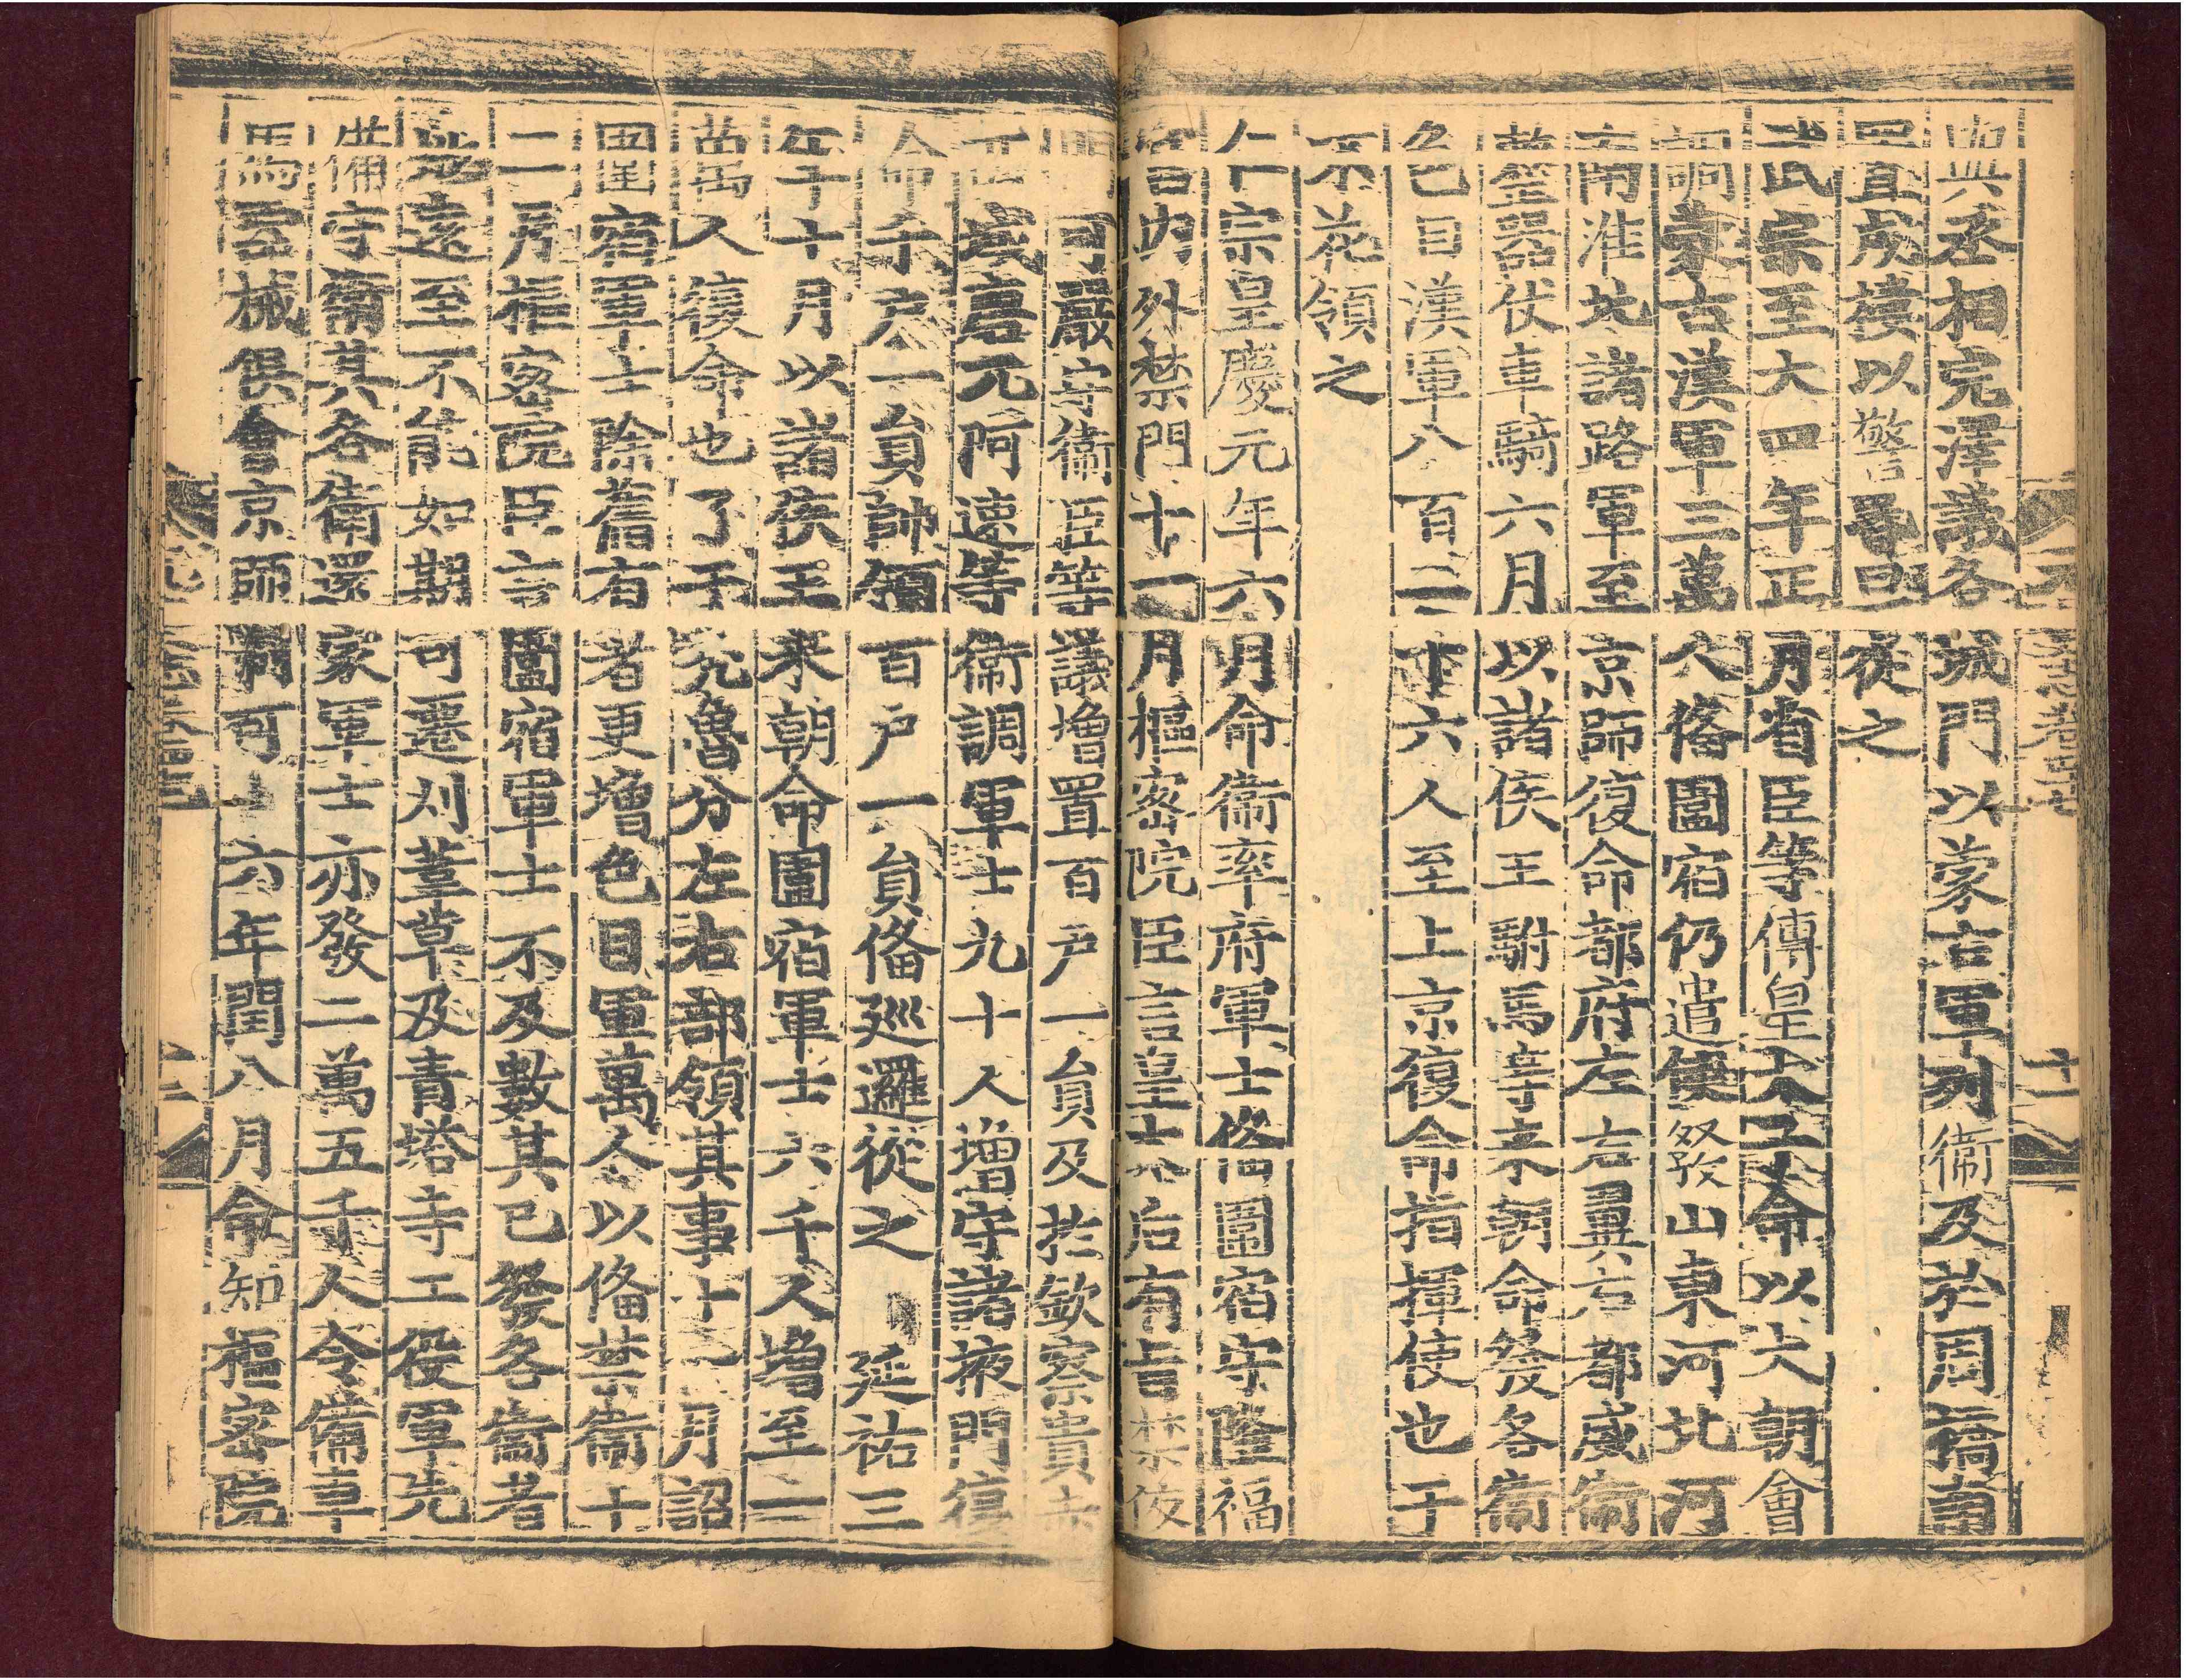 與丞相完澤議各城門以蒙古軍列衛及於周橋南
置戍樓以警昏旦從之
武宗至大四年正月省臣等傳皇太子命以大朝會
調蒙古漢軍三萬人俻圍宿仍遣使發山東河北河
南淮北諸路軍至京師復命都府左右翼右都威衛
整器仗車騎六月以諸侯王駙馬等來朝命發各衛
色目漢軍八百二十六人至上京復命指揮使也干
不花領之
仁宗皇慶元年六月命衛率府軍士俻圍宿守隆福
宮內外禁門十一月樞密院臣言皇太后有旨禁
可嚴守衛臣等議增置百戶一員及於欽察貴赤
阿速等衛調軍士九十人增守諸掖門復
命千戶一員帥領百戶一員俻廵邏從之 延祐三
年十月以諸侯王來朝命圍宿軍士六千人增至一
萬人復命也了干禿魯分左右部領其事十一月詔
圍宿軍士除舊有者更增色目軍萬人以俻禁衛十
二月樞密院臣言圍宿軍士不及數其已發各衛者
遠至不能如期可遷刈葦草及青塔寺工役軍先
備守衛其各衛還家軍士亦發二萬五千人令備車
馬器械俱會京師制可 六年閏八月命知樞密院